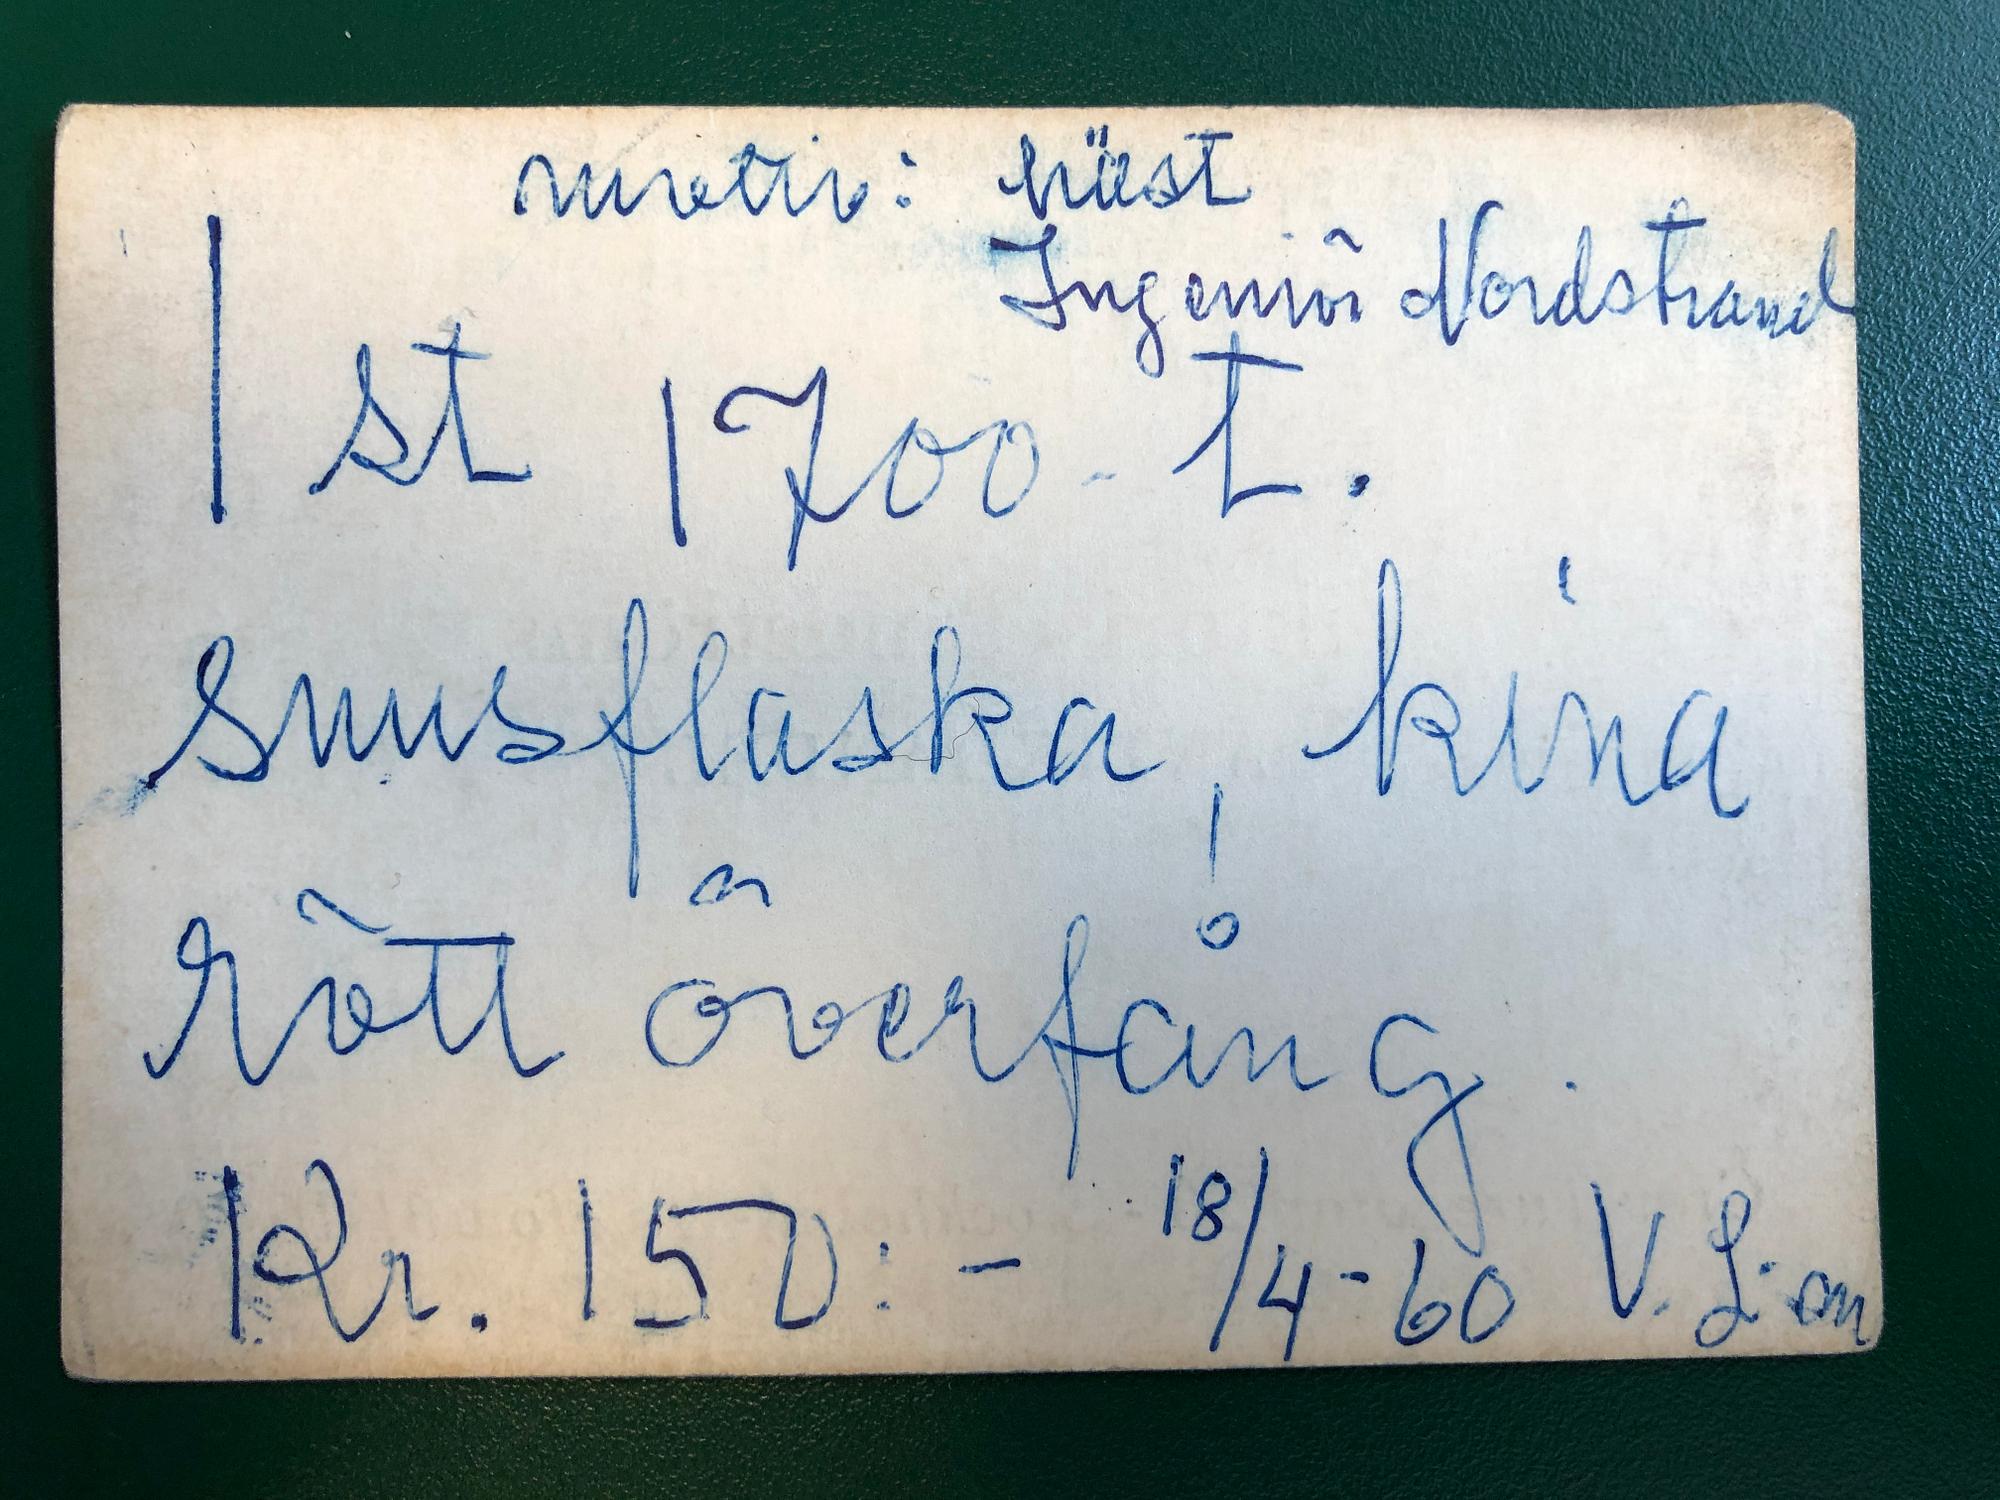 motiv: häst
Ingeniör Nordstrand
1 st 1700-t.
snusflaska, kina
rött överfång.
Kr. 150:- 18/4-60 V. L-on